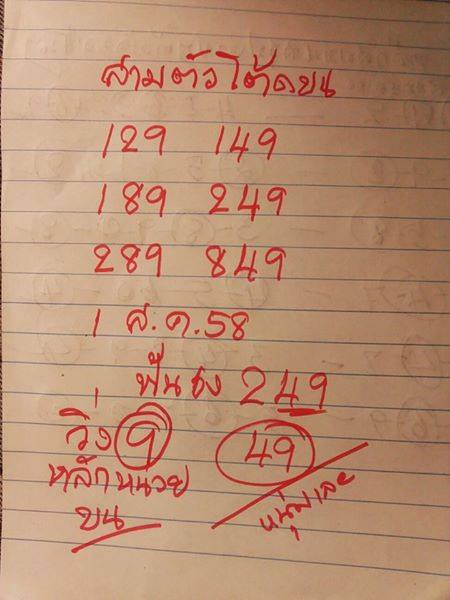 สามตัวโต๊ดบน
129 149
189 249
289 849
1 ส.ค.58
ฟันธง 249
วิ่ง 9 49
หลักหน่วย
บน